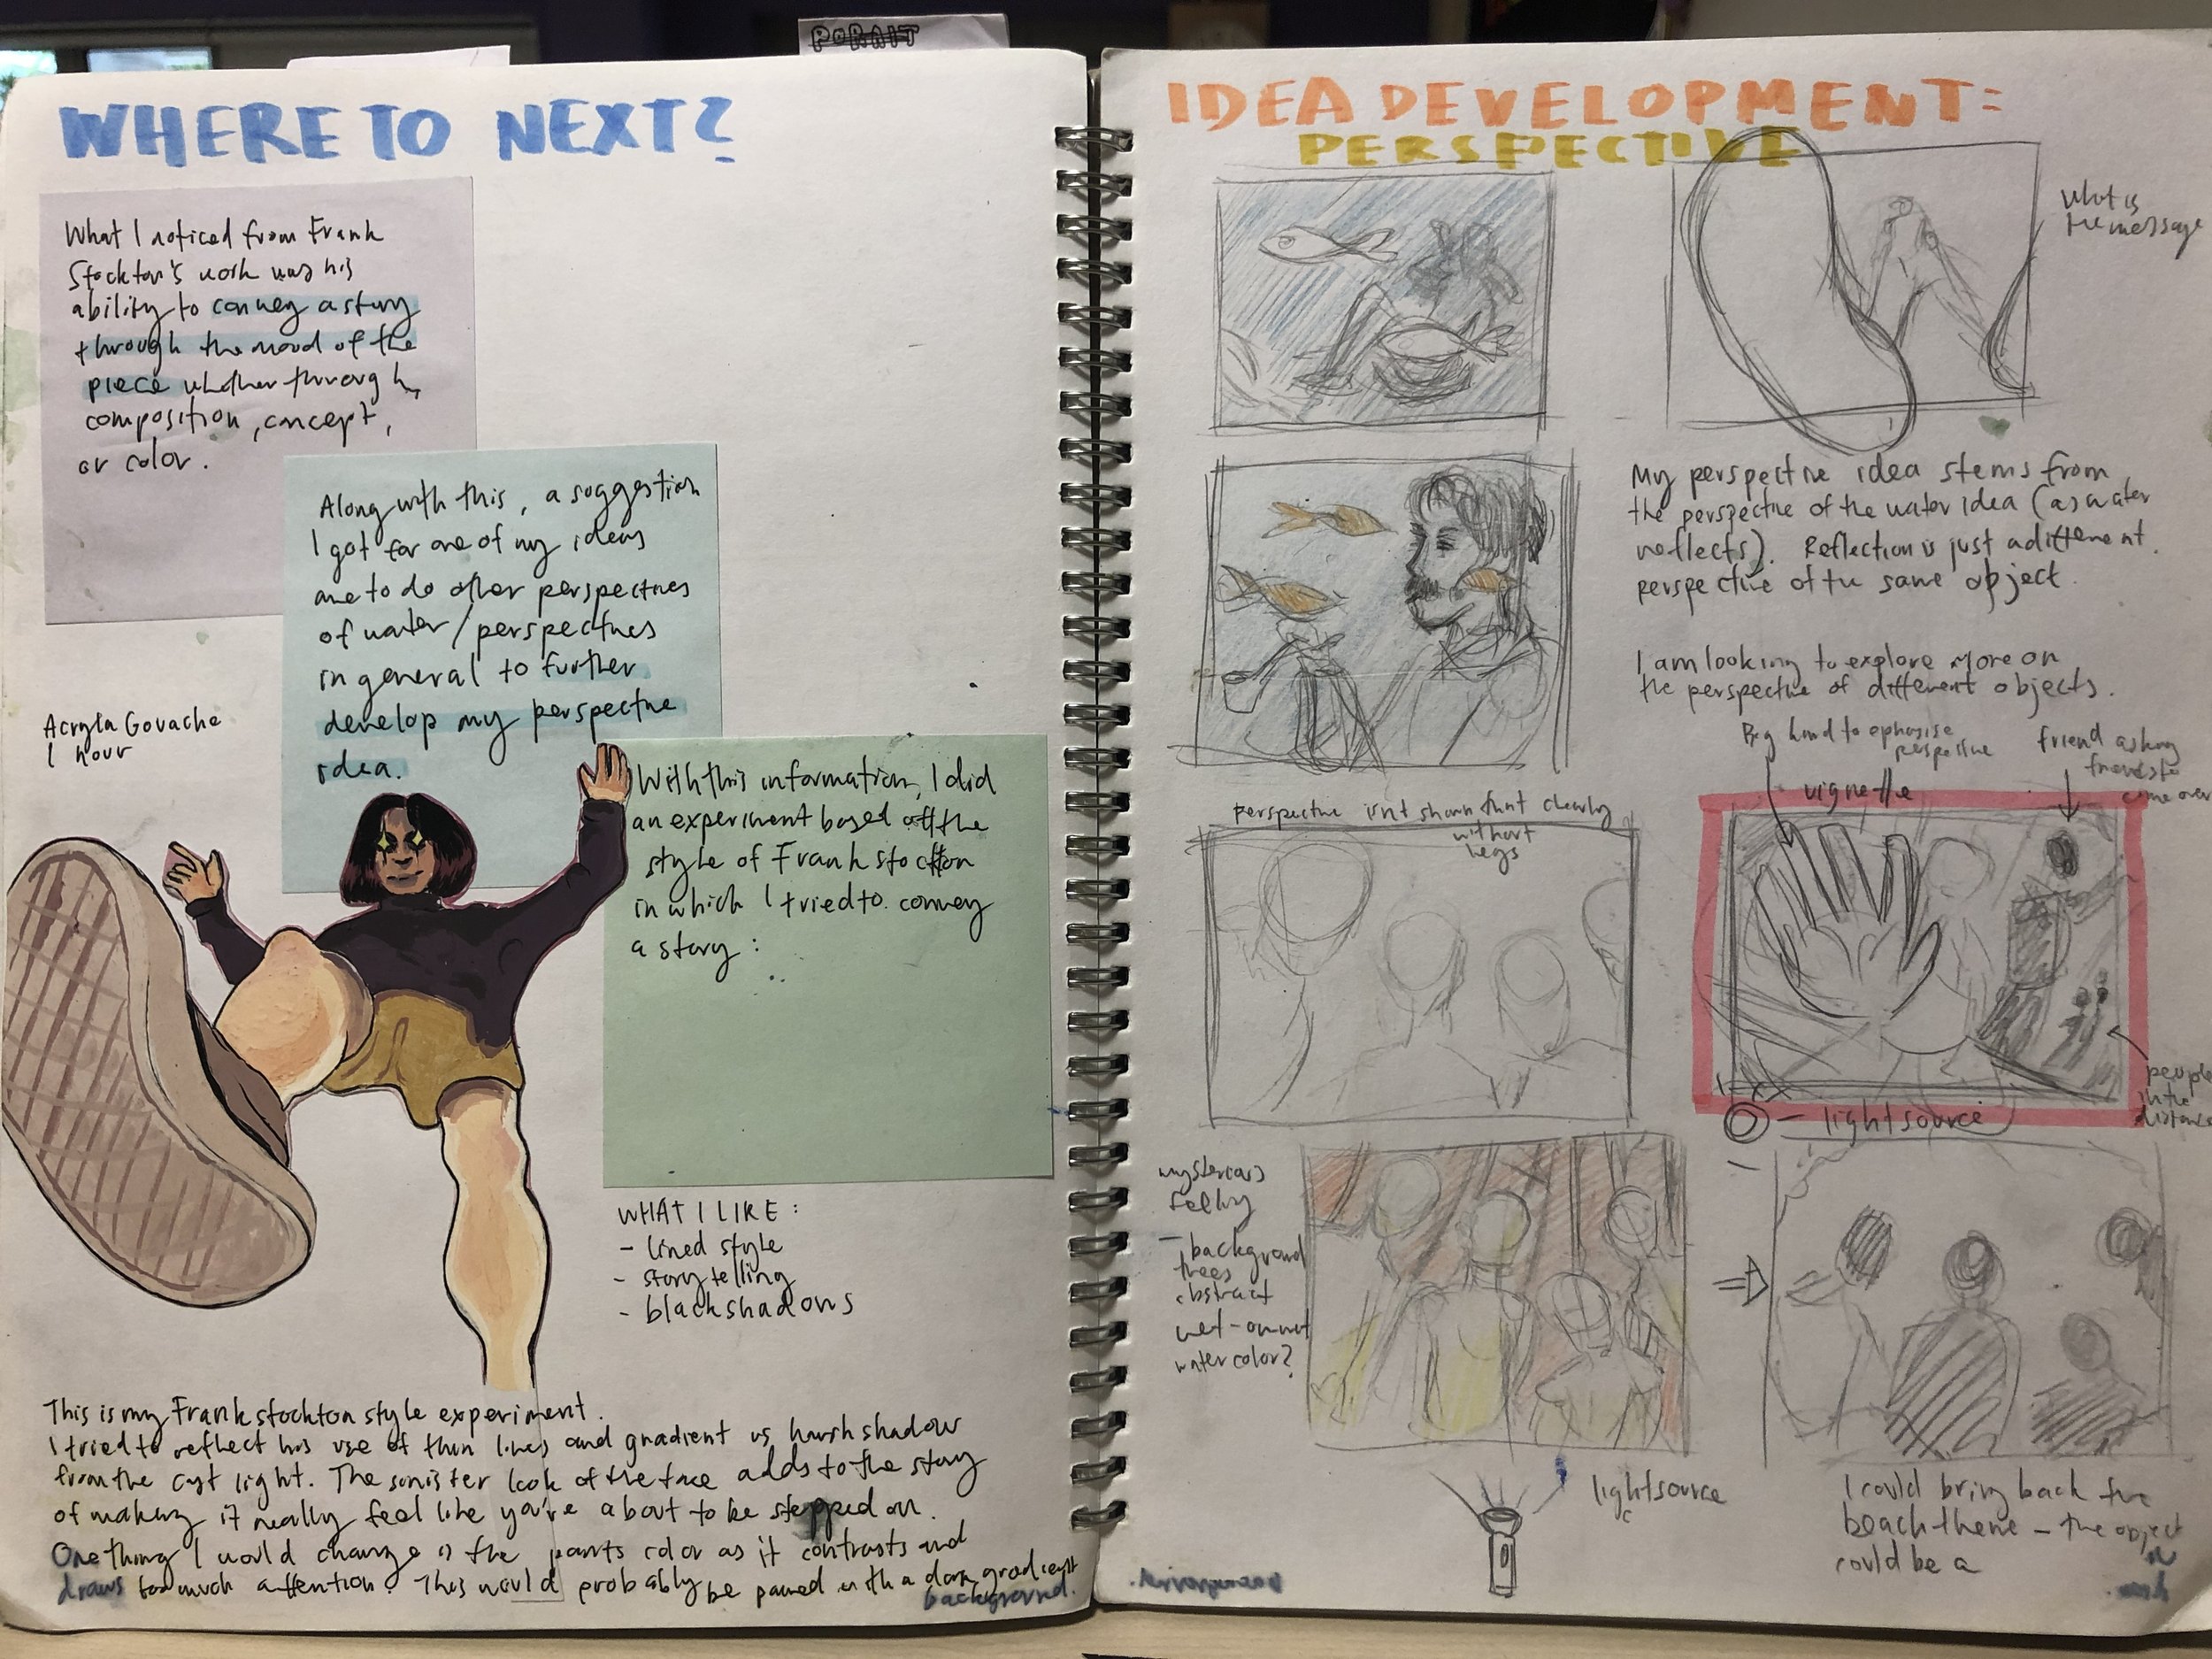 PORAIT
WHERE TO NEXT?
What I noticed from Frank
Stockton's work was his
ability to convey a story
through the mood of the
piece whether through
composition, concept,
or color.
Along with this, a suggestion
I got for one of my ideas
are to do other perspectives
of water/perspectives
in general to further
develop my perspective
idea.
Acryla Gouache
1 hour
With this information, I did
an experiment based off the
style of Frank stockton
in which I tried to convey
a story:
WHAT I LIKE:
- lined style
- storytelling
- black shadows
This is my Frank stockton style experiment.
I tried to reflect his use of thin lines and gradient vs harsh shadow
from the cast light. The sinister look of the face adds to the story
of making it really feel like you're about to be stepped on.
One thing I would change is the pants color as it contrasts and
draws too much attention. This would probably be paired with a dark gradient
background.
IDEA DEVELOPMENT:
PERSPECTIVE
What is
the message
My perspective idea stems from
the perspective of the water idea (as water
reflects). Reflection is just a different
perspective of the same object.
I am looking to explore more on
the perspective of different objects.
Big hand to ephasise
perspective
friend asking
friends to
come over
vignette
perspective isn't shown that clearly
without
legs
people
in the
distance
- lightsource
mysterious
feeling
- background
trees
abstract
wet-on-wet
watercolor?
lightsource
I could bring back the
beach theme - the object
could be a